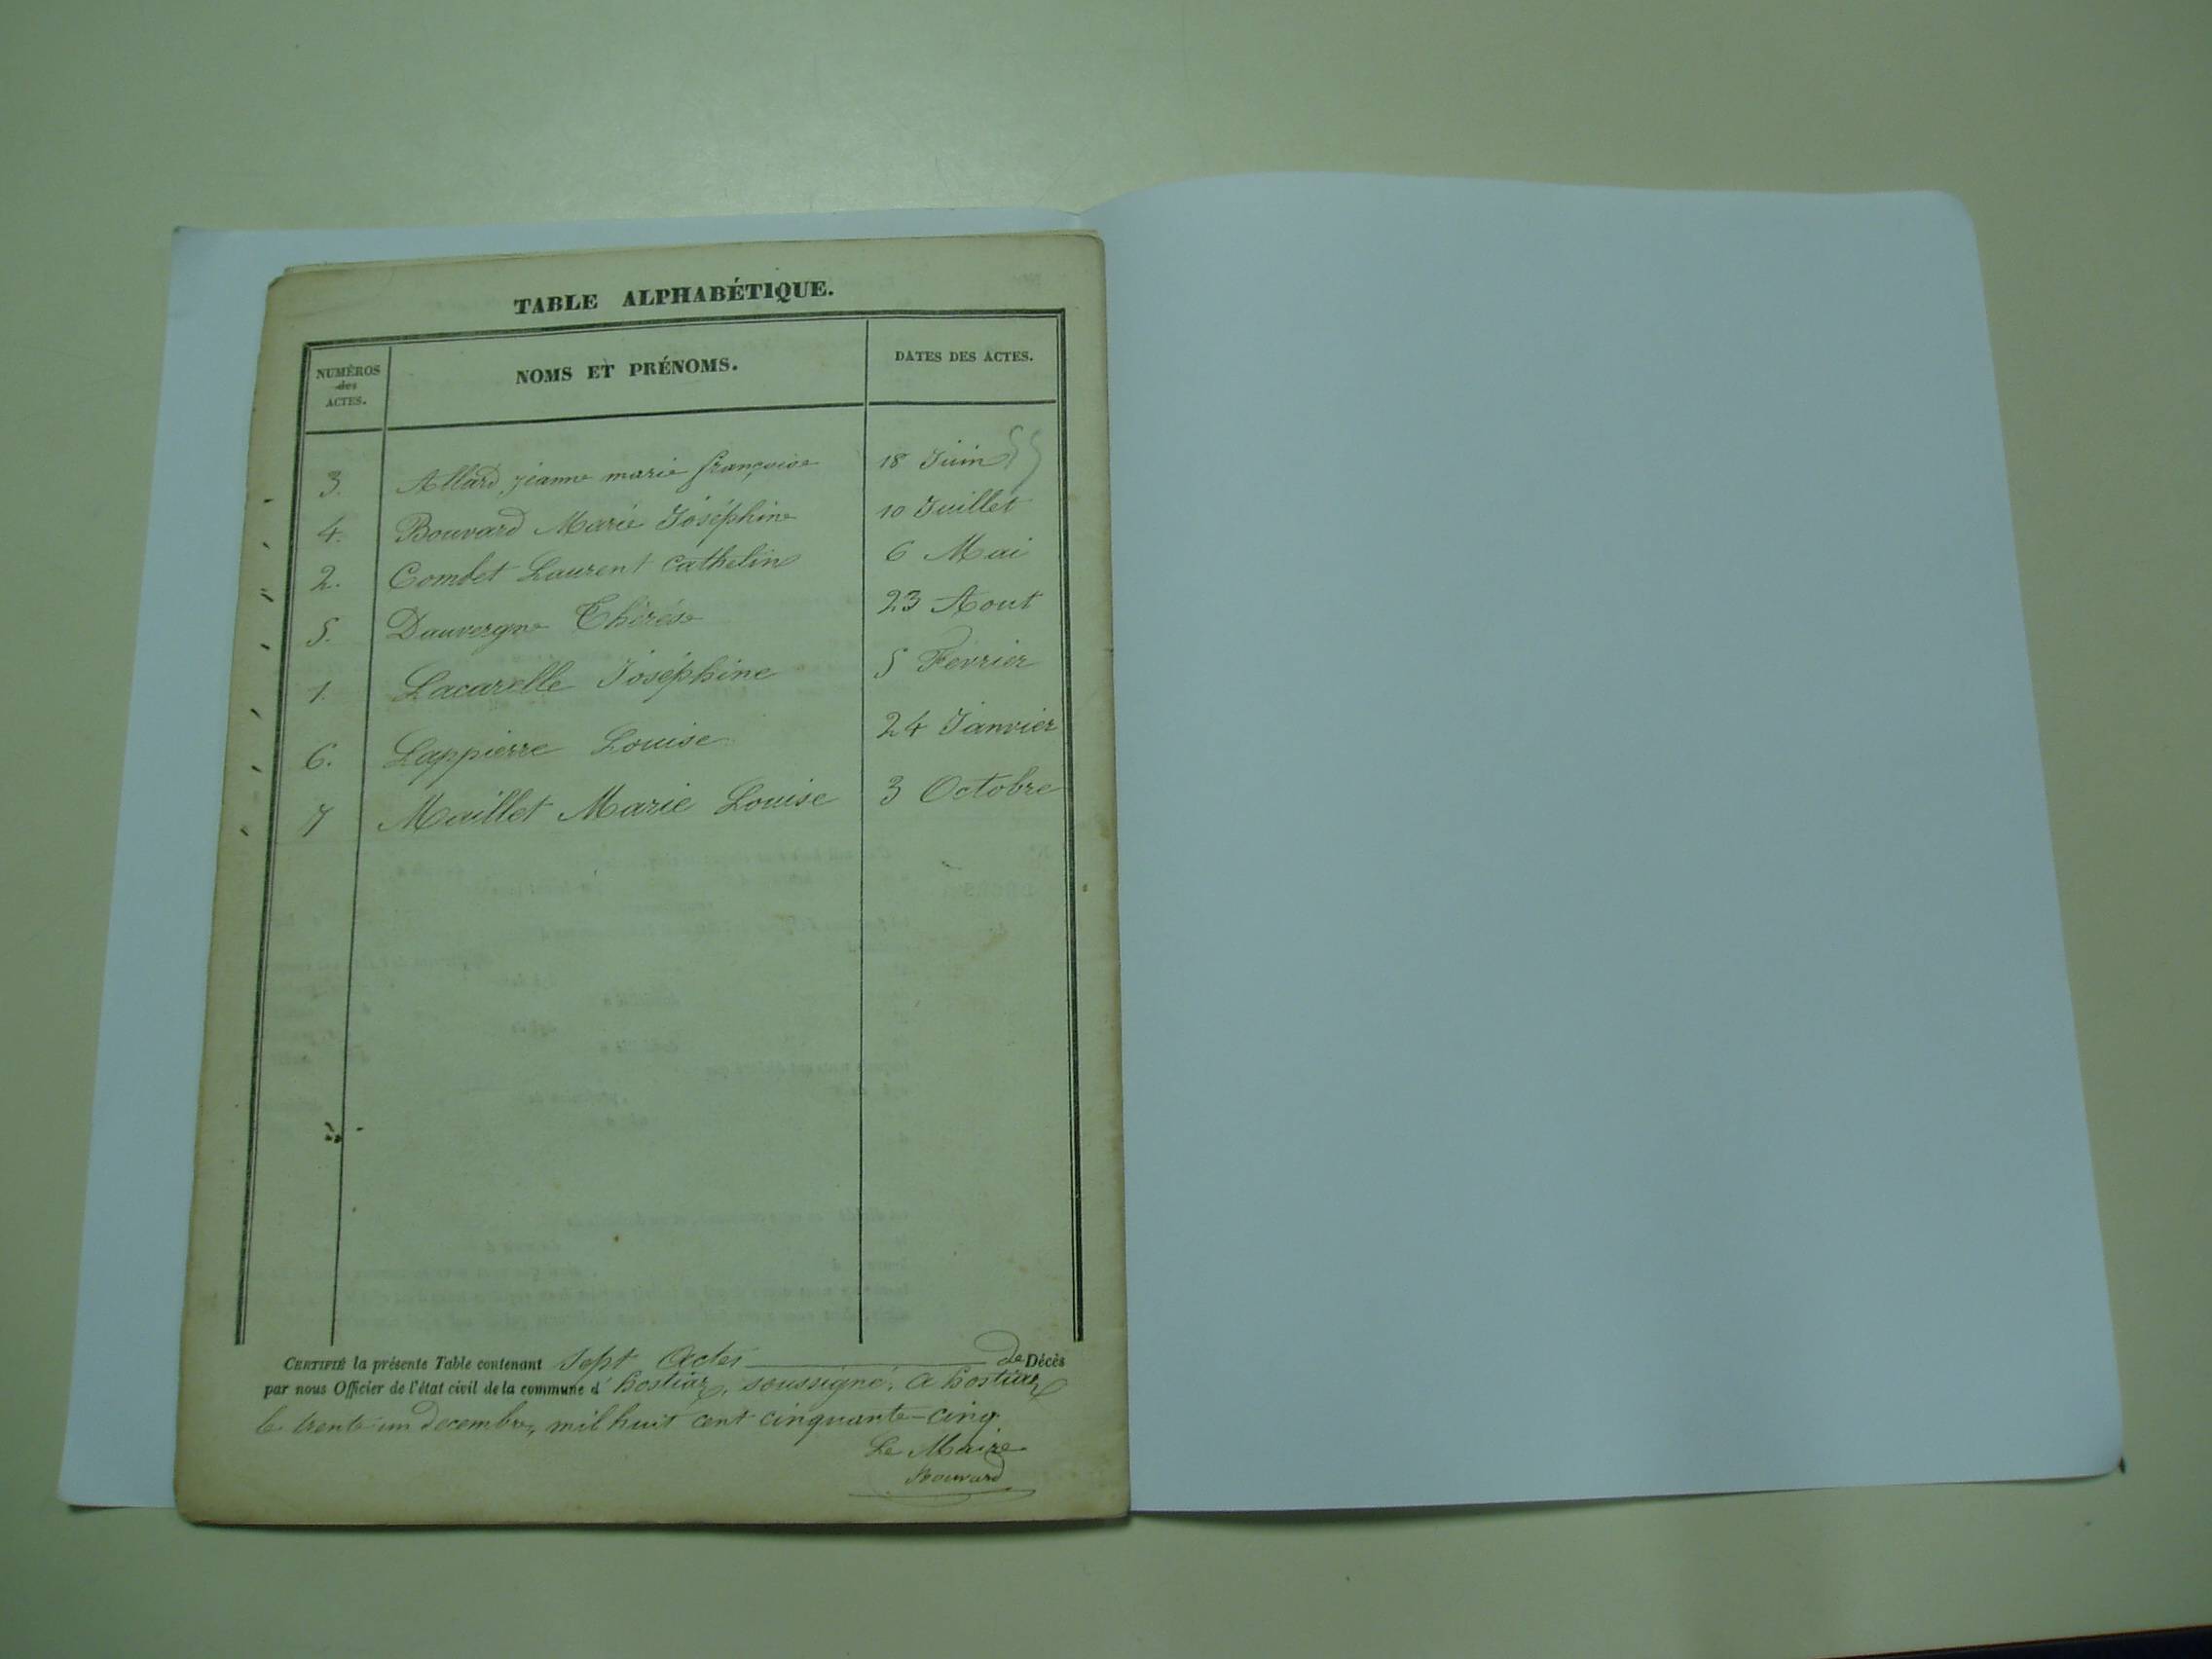 TABLE ALPHABÉTIQUE.
NUMÉROS des ACTES.
NOMS ET PRÉNOMS.
DATES DES ACTES.
3. Allard jeanne marie françoise 18 Juin 55
4. Bouvard Marie Joséphine 10 Juillet
2. Combet Laurent Cathelin 6 Mai
5. Dauvergne Thérése 23 Aout
1. Lacarelle Joséphine 5 Fevrier
6. Lappierre Louise 24 Janvier
7 Maillet Marie Louise 3 Octobre
CERTIFIÉ la présente Table contenant Sept Actes de Décès
par nous Officier de l'état civil de la commune d' hostiaz, soussigné, a hostiaz
le trente-un decembre, mil huit cent cinquante-cinq
Le Maire
Bouvard